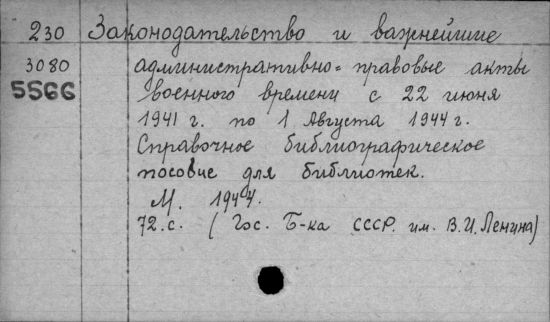 230 Законодательство и важнейшие
3080 административно-правовые акты
5566 военного времени с 22 июня
1941 г. по 1 Августа 1944 г.
Справочное библиографическое
пособие для библиотек.
М. 1944.
72.с. (Гос. Б-ка СССР. им. В.И.Ленина)